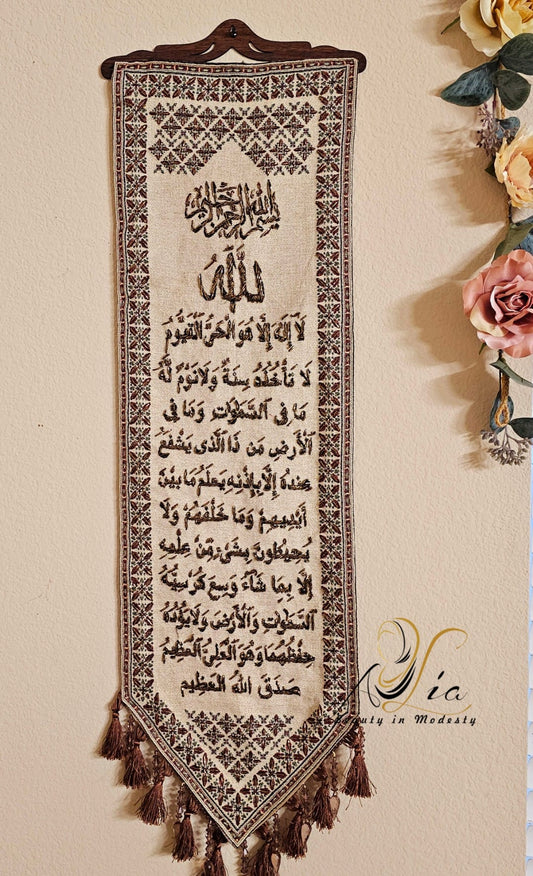 بسم الله الرحمن الرحيم
الله
لَا إِلَهَ إِلَّا هُوَ الْحَيُّ الْقَيُّومُ
لَا تَأْخُذُهُ سِنَةٌ وَلَا نَوْمٌ لَّهُ
مَا فِي السَّمَٰوَاتِ وَمَا فِي
الْأَرْضِ مَن ذَا الَّذِي يَشْفَعُ
عِندَهُ إِلَّا بِإِذْنِهِ يَعْلَمُ مَا بَيْنَ
أَيْدِيهِمْ وَمَا خَلْفَهُمْ وَلَا
يُحِيطُونَ بِشَيْءٍ مِّنْ عِلْمِهِ
إِلَّا بِمَا شَاءَ وَسِعَ كُرْسِيُّهُ
السَّمَٰوَاتِ وَالْأَرْضَ وَلَا يَؤُدُهُ
حِفْظُهُمَا وَهُوَ الْعَلِيُّ الْعَظِيمُ
صَدَقَ اللهُ الْعَظِيم
Beauty in Modesty